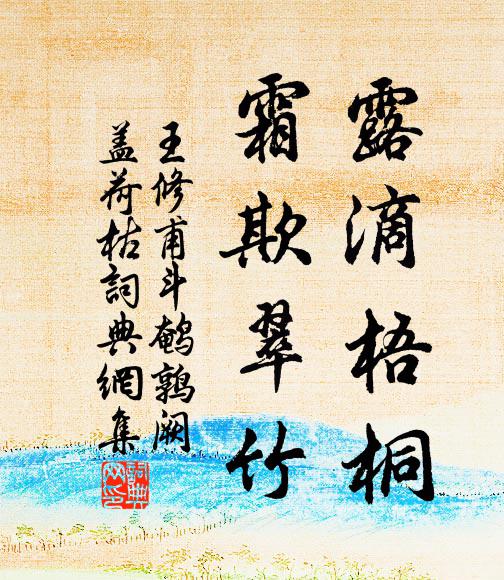 露滴梧桐
霜欺翠竹
王修甫斗鹌鹑阙
盖荷枯詞典網集